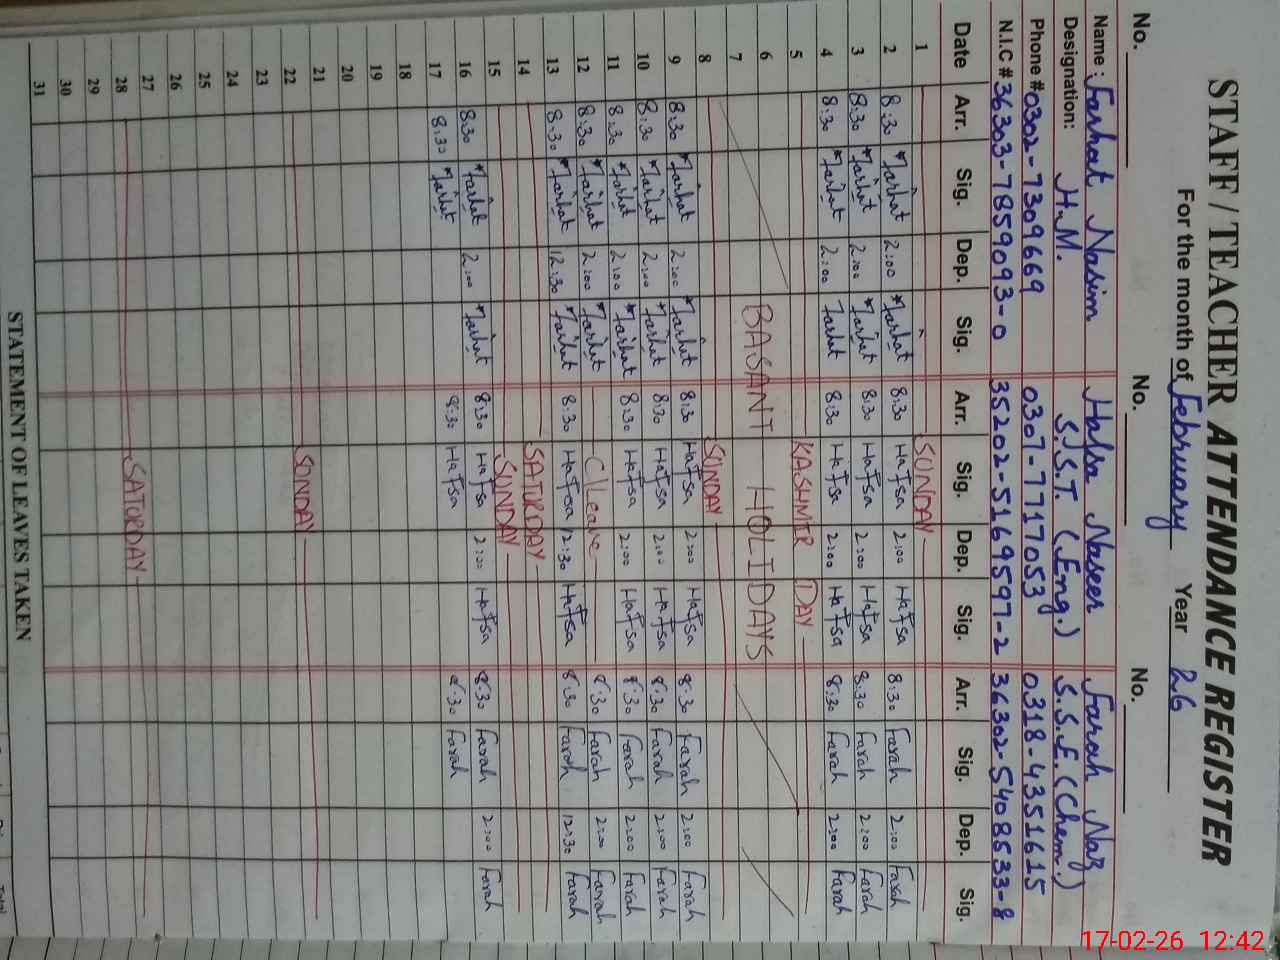 STAFF / TEACHER ATTENDANCE REGISTER
For the month of February Year 26
No. No. No.
Name : Farhat Nasim Hafsa Naseer Farah Naz
Designation: H.M. S.S.T. (Eng.) S.S.E. (Chem.)
Phone # 0302-7309669 0307-7717053 0318-4351615
N.I.C # 36303-7859093-0 35202-5169597-2 36302-5408533-8
Date Arr. Sig. Dep. Sig. Arr. Sig. Dep. Sig. Arr. Sig. Dep. Sig.
1 SUNDAY
2 8:30 Farhat 2:00 Farhat 8:30 Hafsa 2:00 Hafsa 8:30 Farah 2:00 Farah
3 8:30 Farhat 2:00 Farhat 8:30 Hafsa 2:00 Hafsa 8:30 Farah 2:00 Farah
4 8:30 Farhat 2:00 Farhat 8:30 Hafsa 2:00 Hafsa 8:30 Farah 2:00 Farah
5 KASHMIR DAY
6 BASANT HOLIDAYS
7
8 SUNDAY
9 8:30 Farhat 2:00 Farhat 8:30 Hafsa 2:00 Hafsa 8:30 Farah 2:00 Farah
10 8:30 Farhat 2:00 Farhat 8:30 Hafsa 2:00 Hafsa 8:30 Farah 2:00 Farah
11 8:30 Farhat 2:00 Farhat 8:30 Hafsa 2:00 Hafsa 8:30 Farah 2:00 Farah
12 8:30 Farhat 2:00 Farhat C/Leave 8:30 Farah 2:00 Farah
13 8:30 Farhat 12:30 Farhat 8:30 Hafsa 12:30 Hafsa 8:30 Farah 12:30 Farah
14 SATURDAY
15 SUNDAY
16 8:30 Farhat 2:00 Farhat 8:30 Hafsa 2:00 Hafsa 8:30 Farah 2:00 Farah
17 8:30 Farhat 8:30 Hafsa 8:30 Farah
18
19
20
21
22 SUNDAY
23
24
25
26
27
28 SATURDAY
29
30
31
STATEMENT OF LEAVES TAKEN
Total
17-02-26 12:42